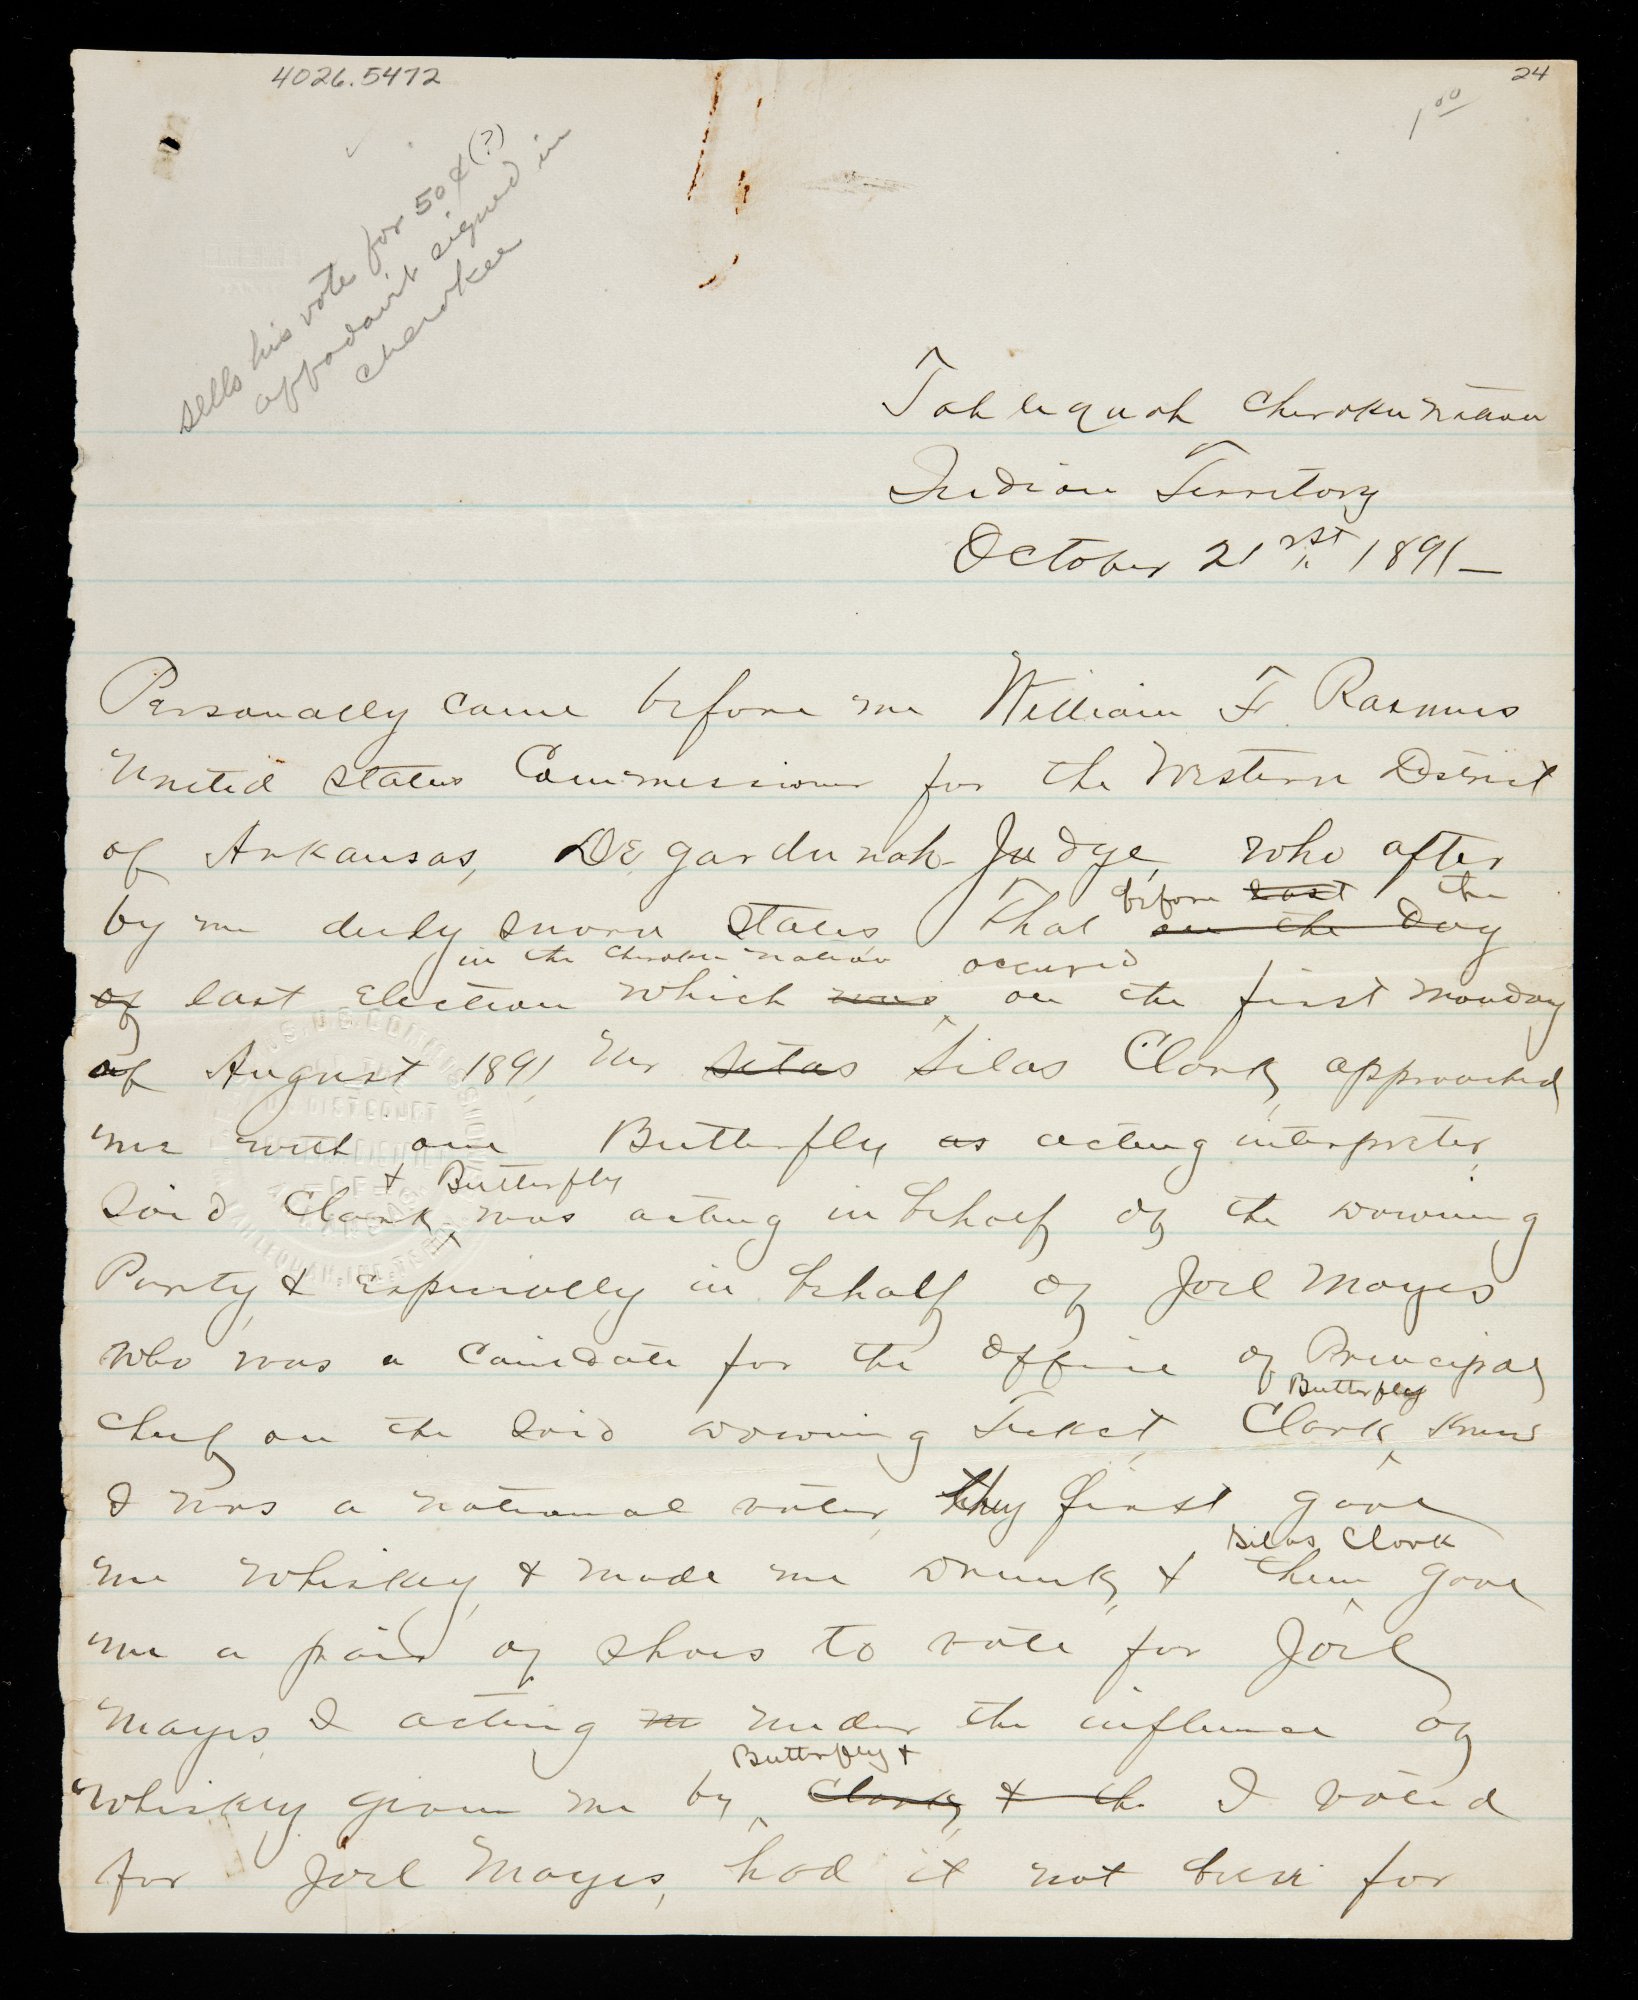 4026.5472
24
1 00
sells his vote for 50¢ (?)
appadavit signed in
cherokee
Tahlequah Cherokee Nation
Indian Territory
October 21 rst 1891 —
Personally came before me William F. Rasmus
United States Commissioner for the Western District
of Arkansas, De, gar du nah Judge, who after
before last the
by me duly sworn states, That on the Day
in the Cherokee Nation occured
of last Election which was on the first Monday
of August 1891, Mr Silas Silas Clark, approached
me with one Butterfly as acting interpreter,
+ Butterfly
Said Clark, was acting in behalf of the Downing
Party, & Especially in behalf of Joel Mayes
who was a Canidate for the Office of Principal
Butterfly
Cheif on the Said Downing Ticket, Clark, Knew
I was a National voter, they first gave
Silas Clark
me Whiskey, & made me Drunk, & then gave
me a pair of shoes to vote for Joel
Mayes, I acting under the influence of
Butterfly +
Whiskey given me by Clark, & the I voted
for Joel Mayes, had it not been for